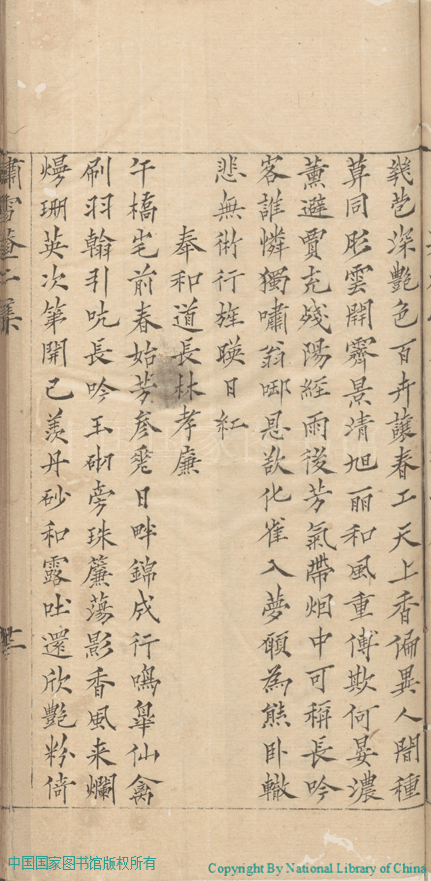 幾苞深艷色百卉讓春工天上香偏異人間種
莫同彤雲開霽景清旭麗和風重傅欺何晏濃
薰避賈充殘陽經雨後芳氣帶烟中可稱長吟
客誰憐獨嘯翁哪思欲化雀入夢願為熊卧轍
悲無術行旌暎日紅
奉和道長林孝廉
午橋宅前春始芳彥霓日畔錦成行鳴皋仙禽
刷羽翰引吭長吟玉砌旁珠簾蕩影香風来爛
熳珊英次第開已羡丹砂和露吐還欣艷粉倚
嘯雪菴二集
廿二
中国国家图书馆版权所有
Copyright By National Library of China